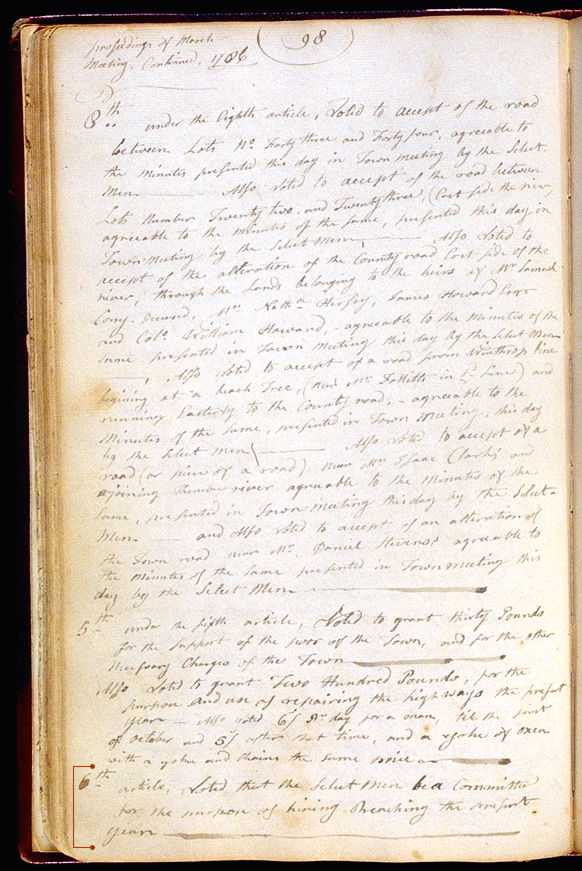 98
proceedings of March
Meeting, Continued, 1786
8th under the Eighth article, Voted to accept of the road
between Lots No Forty three and Forty four, agreeable to
the minutes presented this day in Town meeting by the Select
Men. Also voted to accept of the road between
Lots Number Twenty two, and Twenty three, (East side the river,
agreeable to the minutes of the same, presented this day in
Town meeting by the Select Men Also Voted to
accept of the alteration of the County road East side of the
river, through the Lands belonging to the heirs of Mr Samuel
Cony. Deceasd, Mr Nathl Hersey, James Howard Esqr
and Colo William Howard, agreeable to the minutes of the
same presented in Town meeting this day by the Select Men
Also voted to accept of a road from Winthrop line
begining at a beach Tree, (near Mr in sd Line) and
runing Easterly to the County road, agreeable to the
Minutes of the same, presented in Town Meeting, this day
by the Select Men Also voted to accept of a
road (or piece of a road) near Mr Isaac Clark's and
ajoining river agreeable to the minutes of the
same, presented in Town meeting this day by the Select-
Men and Also voted to accept of an alteration of
the Town road near Mr. Daniel Stevens's agreeable to
the minutes of the same presented in Town meeting this
day by the Select Men
5th under the fifth article, Voted to grant thirty Pounds
for the Support of the poor of the Town, and for the other
Necessary Charges of the Town
Also Voted to grant Two Hundred Pounds, for the
purpose and use of repairing the highways the present
year Also voted 6/ Pr day for a man, till the first
of October and 3/ after that time, and a yoke of oxen
with a yoke and chains the same price
6th article, Voted that the Select Men be a Committee
for the purpose of hiring Preaching the present
year